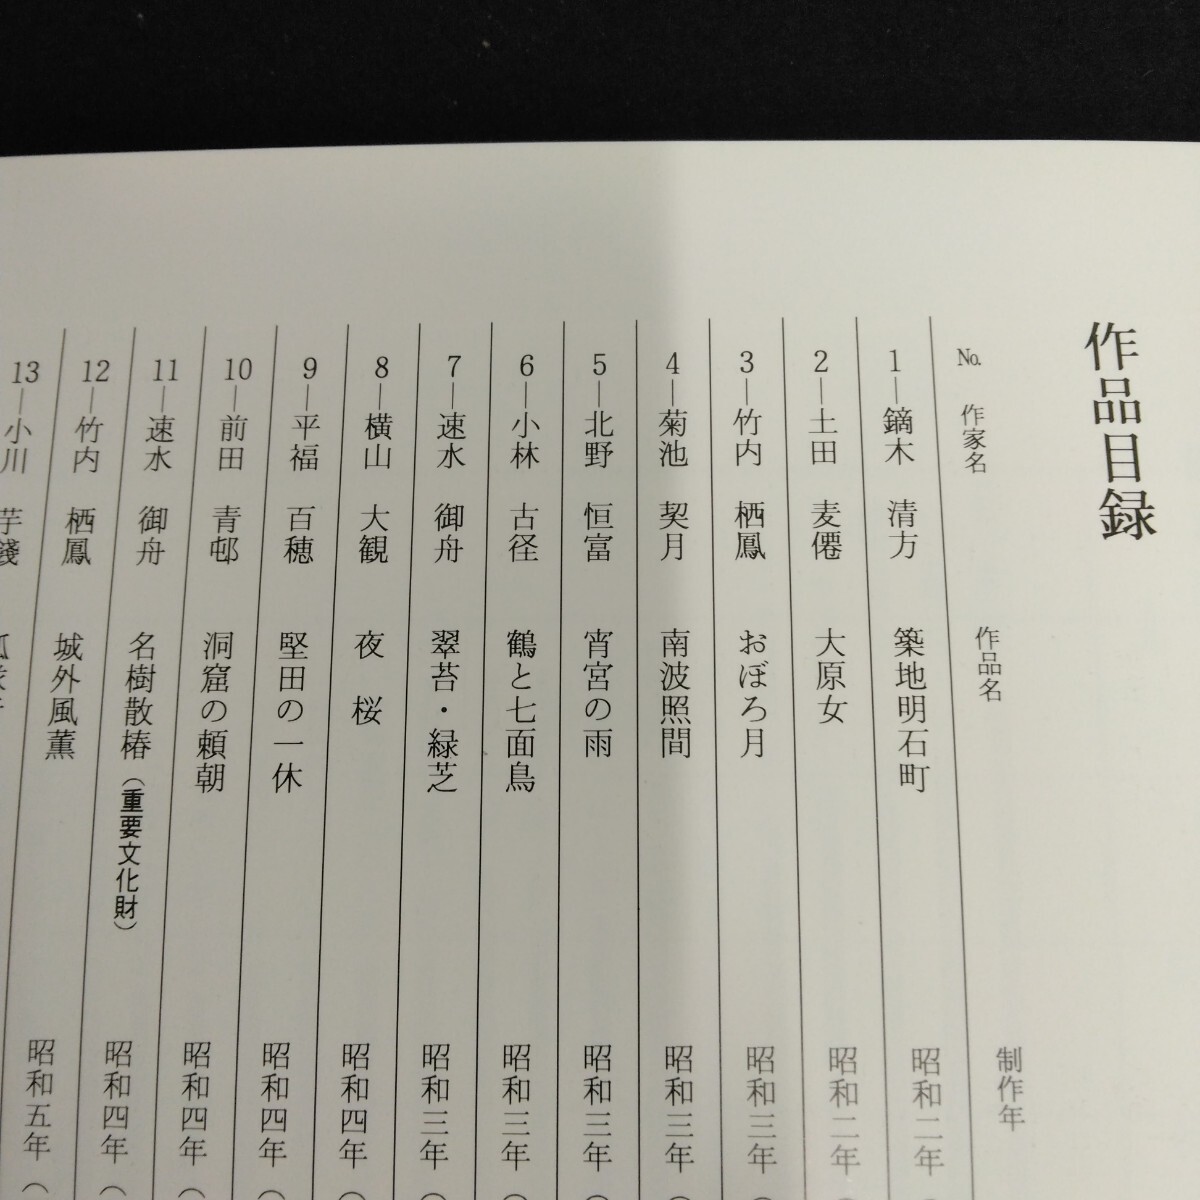 作品目録
No. 作家名 作品名 制作年
1―鏑木 清方 築地明石町 昭和二年（
2―土田 麦僊 大原女 昭和二年（
3―竹内 栖鳳 おぼろ月 昭和三年（
4―菊池 契月 南波照間 昭和三年（
5―北野 恒富 宵宮の雨 昭和三年（
6―小林 古径 鶴と七面鳥 昭和三年（
7―速水 御舟 翠苔・緑芝 昭和三年（
8―横山 大観 夜 桜 昭和四年（
9―平福 百穂 堅田の一休 昭和四年（
10―前田 青邨 洞窟の頼朝 昭和四年（
11―速水 御舟 名樹散椿（重要文化財） 昭和四年（
12―竹内 栖鳳 城外風薫 昭和五年（
13―小川 芋錢